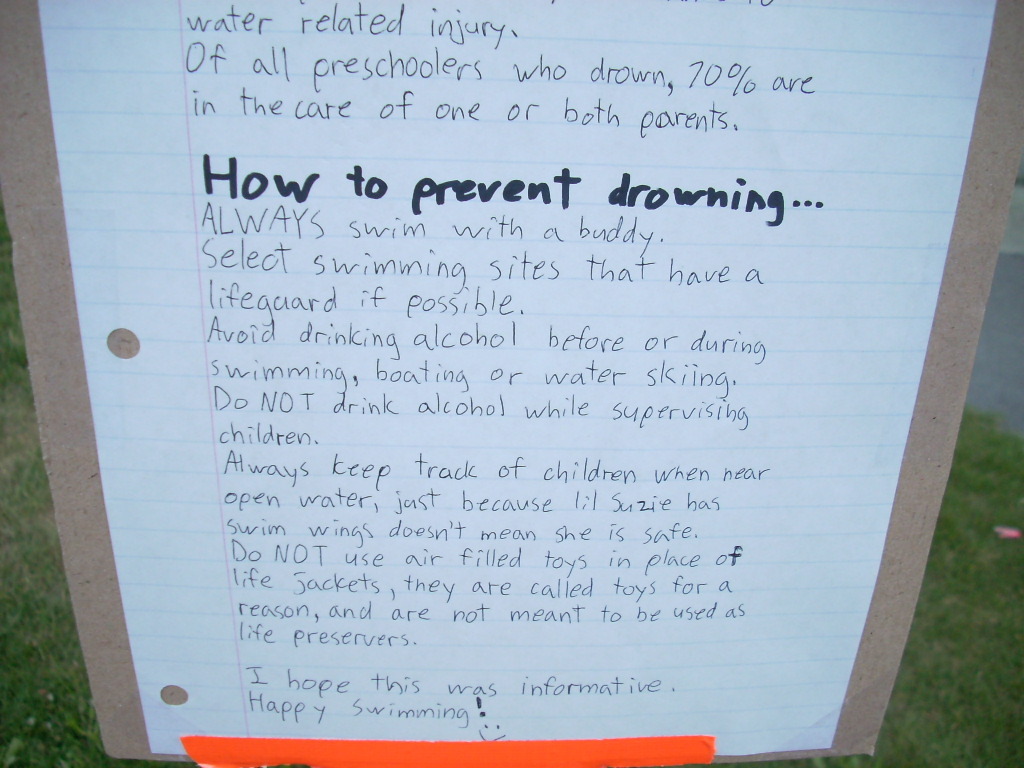 water related injury.
Of all preschoolers who drown, 70% are
in the care of one or both parents.
How to prevent drowning...
ALWAYS swim with a buddy.
Select swimming sites that have a
lifeguard if possible.
Avoid drinking alcohol before or during
swimming, boating or water skiing.
Do NOT drink alcohol while supervising
children.
Always keep track of children when near
open water, just because lil Suzie has
swim wings doesn't mean she is safe.
Do NOT use air filled toys in place of
life jackets, they are called toys for a
reason, and are not meant to be used as
life preservers.
I hope this was informative.
Happy swimming!